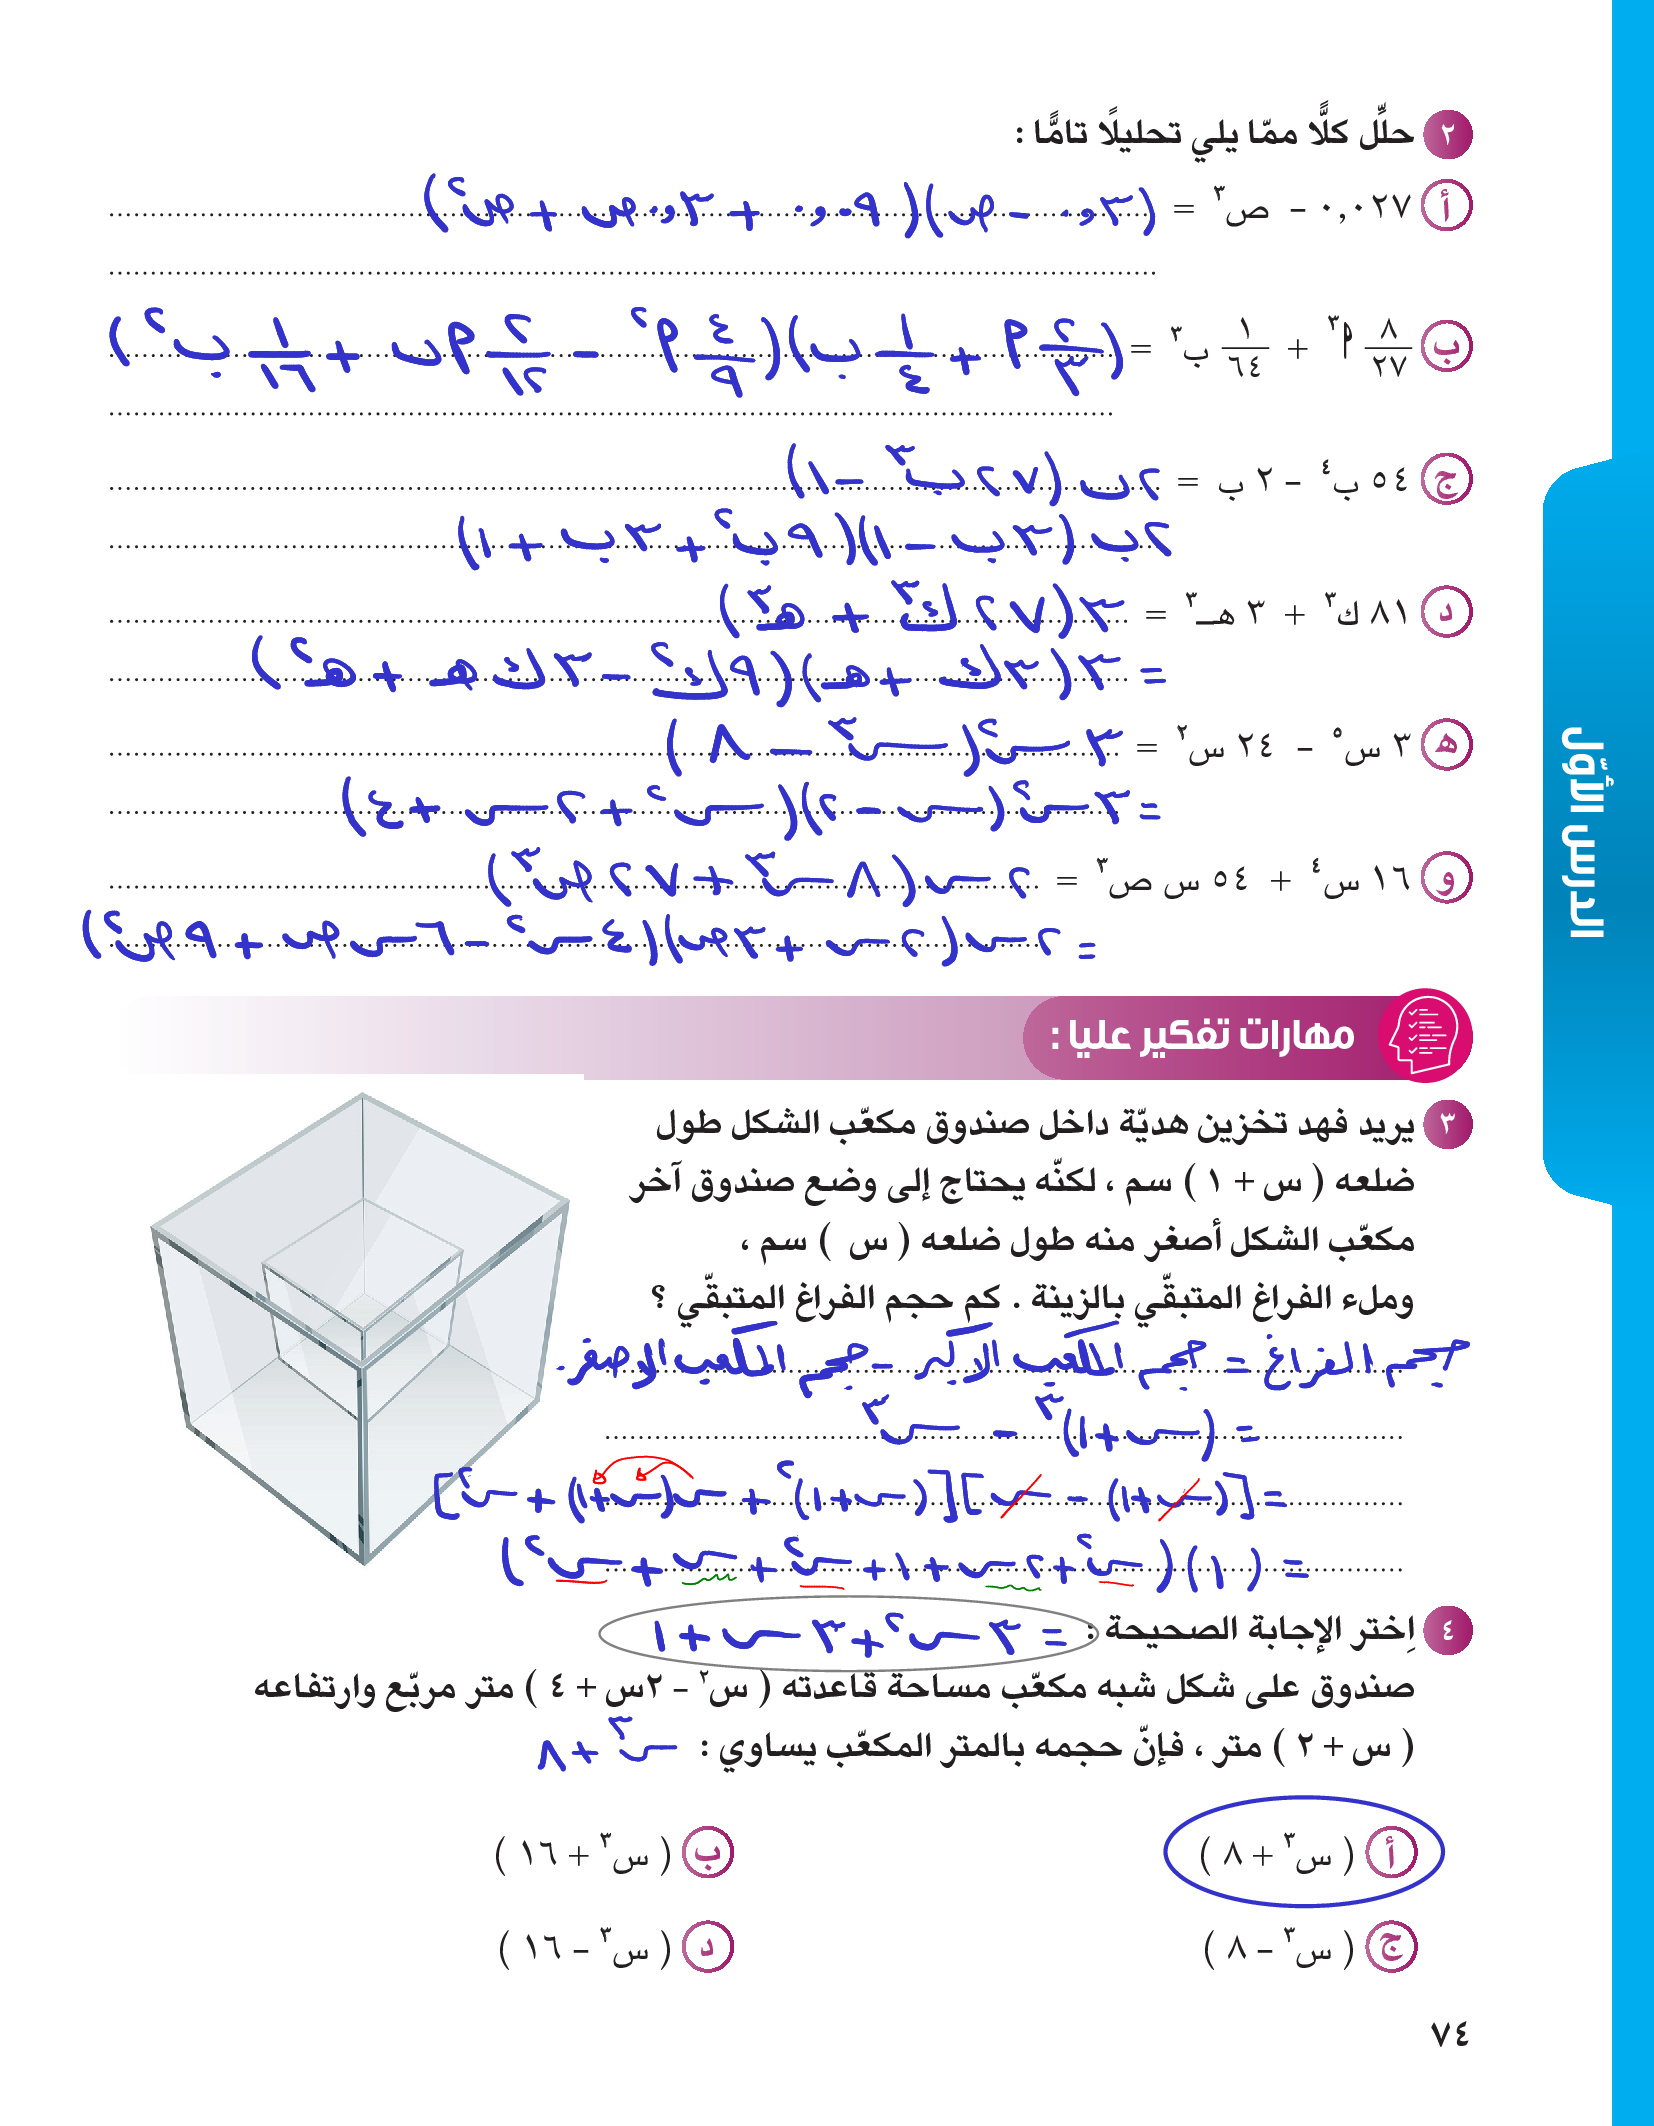 ٢ حلِّل كلًّا ممّا يلي تحليلًا تامًّا :
أ ٠,٠٢٧ – ص٣ = (٠,٣ – ص)(٠,٠٩ + ٠,٣ ص + ص٢)
ب ٨/٢٧ أ٣ + ١/٦٤ ب٣ = (٢/٣ أ + ١/٤ ب)(٤/٩ أ٢ – ٢/١٢ أ ب + ١/١٦ ب٢)
ج ٥٤ ب٤ – ٢ ب = ٢ب (٢٧ ب٣ – ١)
٢ب (٣ب – ١)(٩ب٢ + ٣ب + ١)
د ٨١ ك٣ + ٣ هـ٣ = ٣(٢٧ ك٣ + هـ٣)
= ٣(٣ك + هـ)(٩ك٢ – ٣ك هـ + هـ٢)
ه ٣ س٥ – ٢٤ س٢ = ٣ س٢(س٣ – ٨)
= ٣س٢(س – ٢)(س٢ + ٢س + ٤)
و ١٦ س٤ + ٥٤ س ص٣ = ٢ س(٨ س٣ + ٢٧ ص٣)
= ٢س(٢س + ٣ص)(٤س٢ – ٦س ص + ٩ص٢)
الدرس الأوّل
مهارات تفكير عليا :
٣ يريد فهد تخزين هديّة داخل صندوق مكعّب الشكل طول
ضلعه ( س + ١ ) سم ، لكنّه يحتاج إلى وضع صندوق آخر
مكعّب الشكل أصغر منه طول ضلعه ( س ) سم ،
وملء الفراغ المتبقّي بالزينة . كم حجم الفراغ المتبقّي ؟
حجم الفراغ = حجم المكعب الاكبر – حجم المكعب الاصغر.
= (س+١)٣ – س٣
= [(س+١) – س][(س+١)٢ + س(س+١) + س٢]
= (١)(س٢ + ٢س + ١ + س٢ + س + س٢)
= ٣س٢ + ٣س + ١
٤ اِختر الإجابة الصحيحة :
صندوق على شكل شبه مكعّب مساحة قاعدته ( س٢ – ٢س + ٤ ) متر مربّع وارتفاعه
( س + ٢ ) متر ، فإنّ حجمه بالمتر المكعّب يساوي : س٣ + ٨
أ ( س٣ + ٨ )
ب ( س٣ + ١٦ )
ج ( س٣ – ٨ )
د ( س٣ – ١٦ )
٧٤